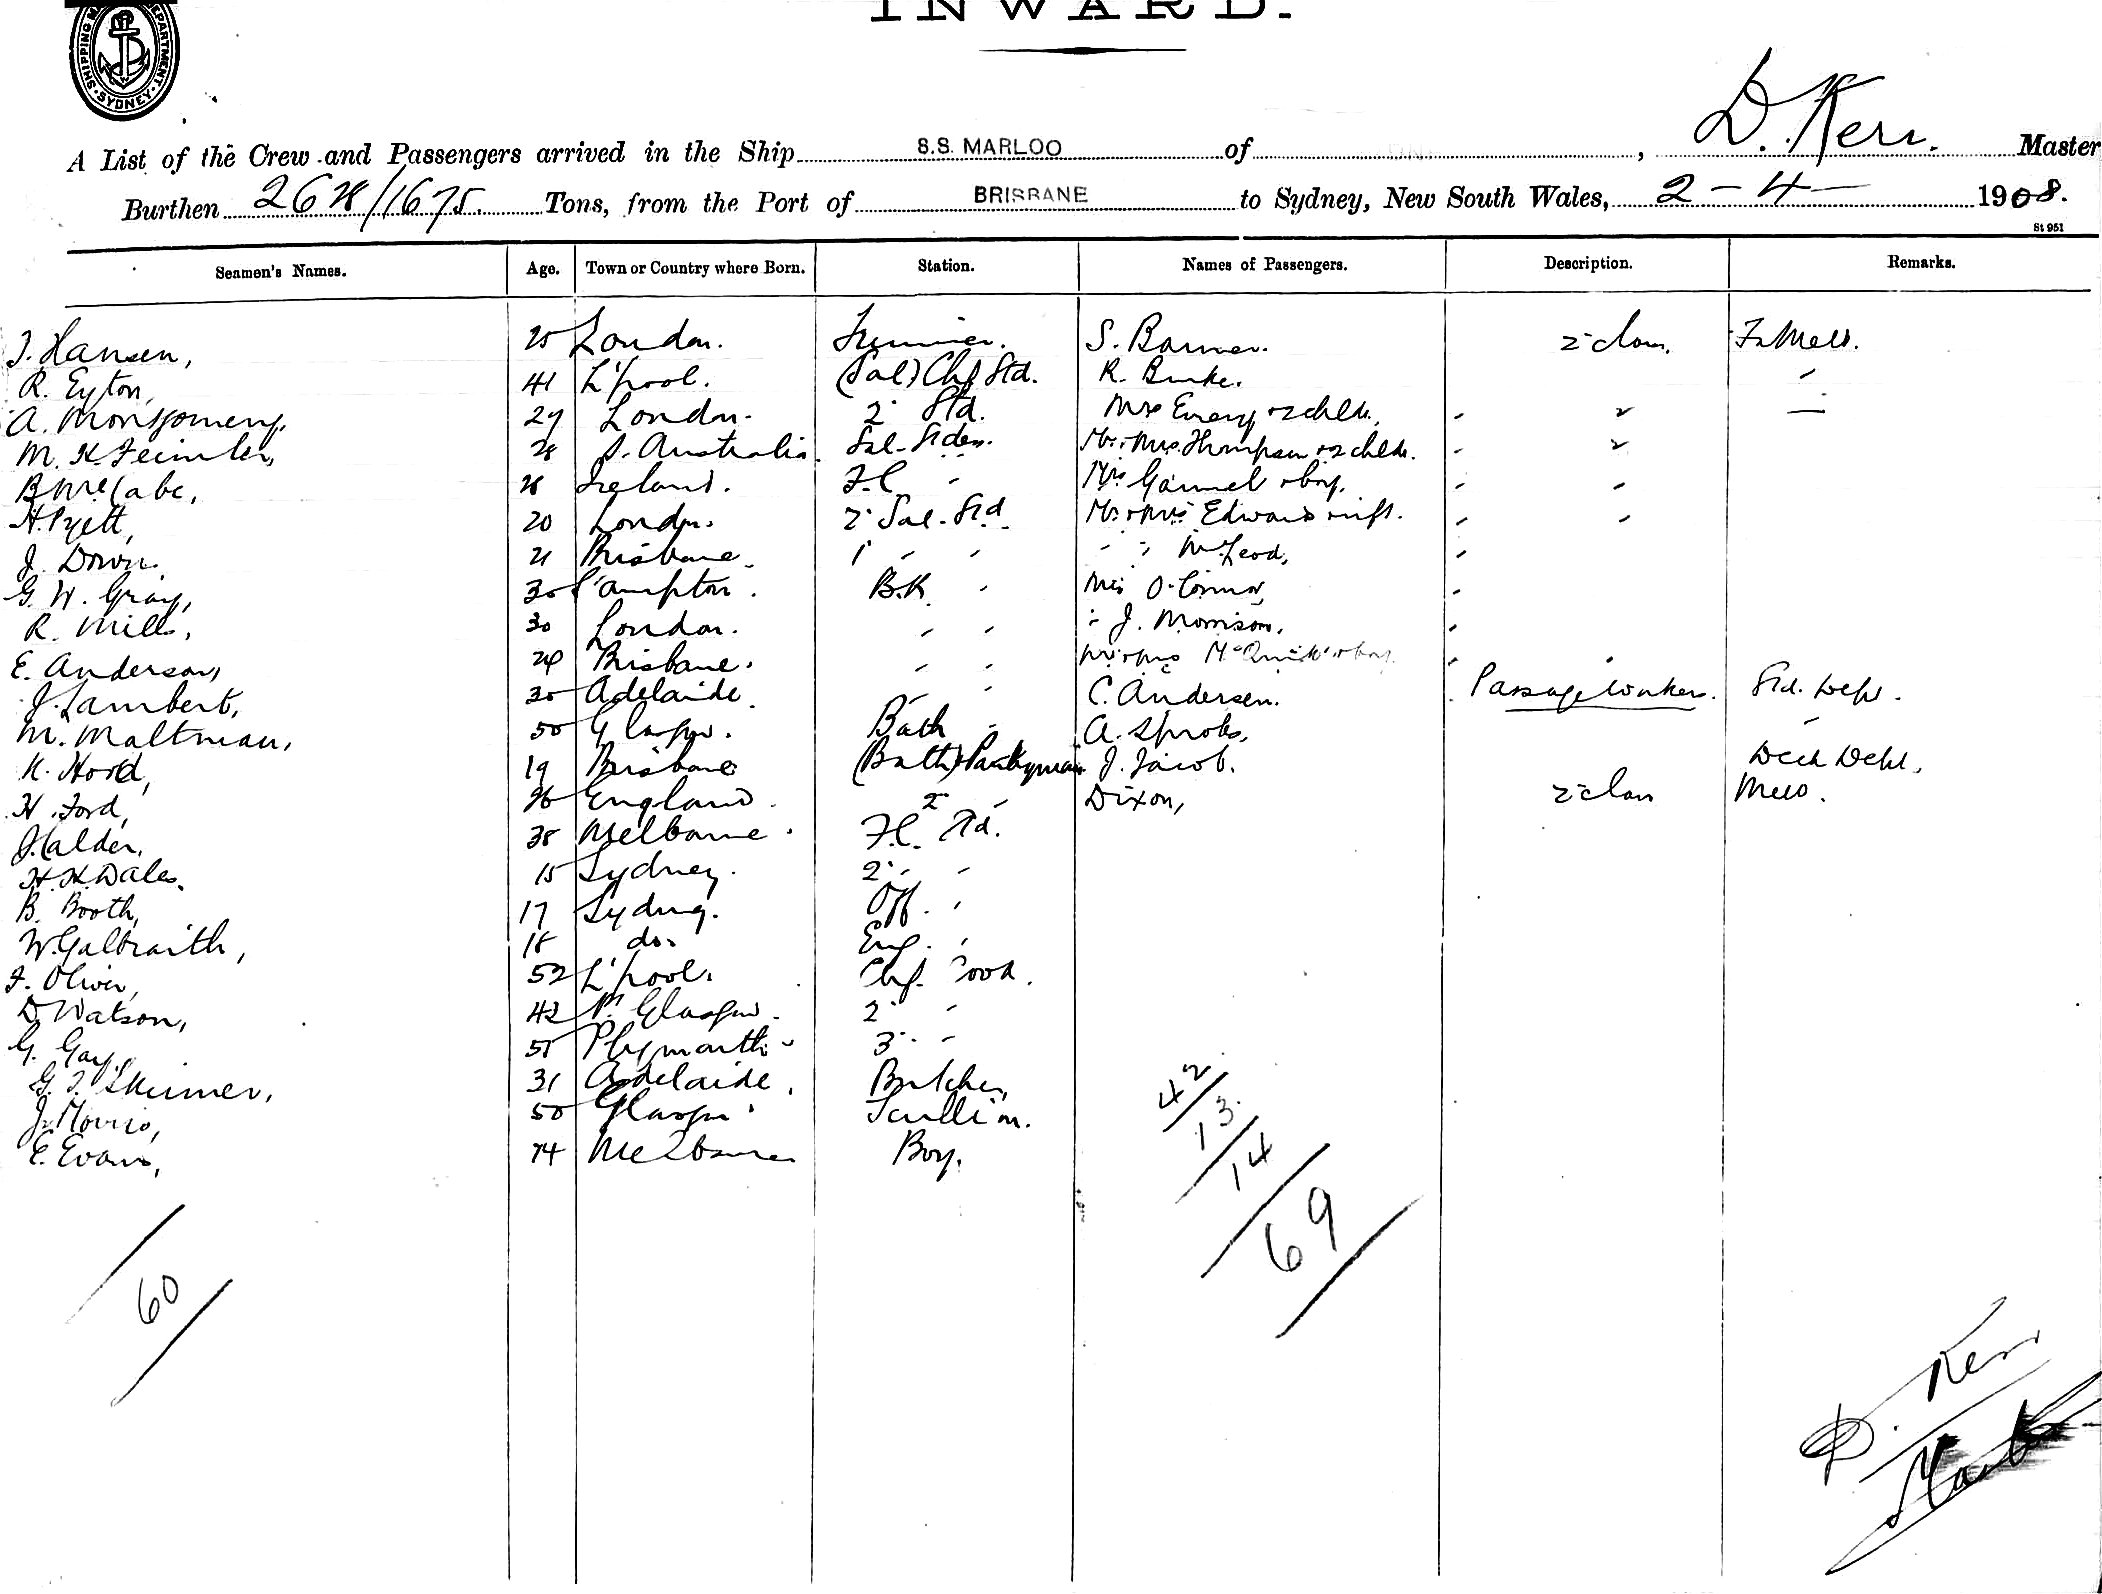 INWARD.
SHIPPING DEPARTMENT. SYDNEY
A List of the Crew and Passengers arrived in the Ship S.S. MARLOO of , D. Kerr. Master
Burthen /1675. Tons, from the Port of BRISBANE to Sydney, New South Wales, 2-4- 1908.
St 951
Seamen's Names. Age. Town or Country where Born. Station. Names of Passengers. Description. Remarks.
J. Hansen, 25 London. Trimmer. S. 2 class.
R. Eyton, 41 L'pool. (Sal) Chf Std. R. Burke. "
A. Montgomery, 29 London. 2 Std. Mrs Emery + 2 chldn. " "
M. H. 28 S. Australia. Sal. Mr + Mrs Thompson + 2 chldn. " "
B. McCabe, 28 Ireland. F.C. " Mrs + boy. " "
H. Pyett, 20 London. 2 Sal. Std. Mr + Mrs Edwards + inft. " "
J. Down. 21 Brisbane. 1 " " " " McLeod, "
G. W. Gray, 30 S'ampton. B.K. " O'Connor, "
R. Mills, 30 London. " " " J. Morrison, "
E. Anderson, Brisbane. " " "
J. Lambert, 30 Adelaide. " " C. Andersen. Passage Workers. Std. Dept.
M. Maltman, 50 Glasgow. Bath " A. Sprots, "
K. Hood, 19 Brisbane (Bath) Pantryman J. Jacob. Deck Dept.
H. Ford, 26 England. 2 " Dixon, 2 class
J. Calder, 38 Melbourne. F.C. Std.
H. H. Dales. 15 Sydney. 2 " "
B. Booth, 17 Sydney. Off. "
W. Galbraith, 18 do. Eng. "
F. Oliver, 52 L'pool. Chf. Cook.
D Watson, 42 Glasgow. 2 "
G. Gay, 51 Plymouth 3 "
G. T. Skinner, 31 Adelaide. Butcher,
J. Morris, 50 Glasgow. Scullion.
E. Evans, 14 Melbourne Boy.
42
13
14
69
60
D. Kerr